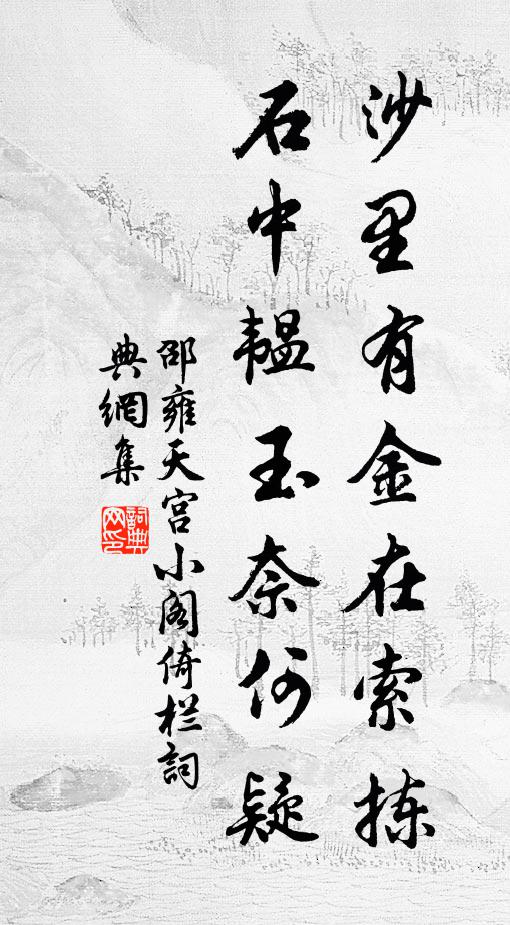 沙里有金在索拣
石中韫玉奈何疑
邵雍天宫小阁倚栏詞
典網集
詞典
网印